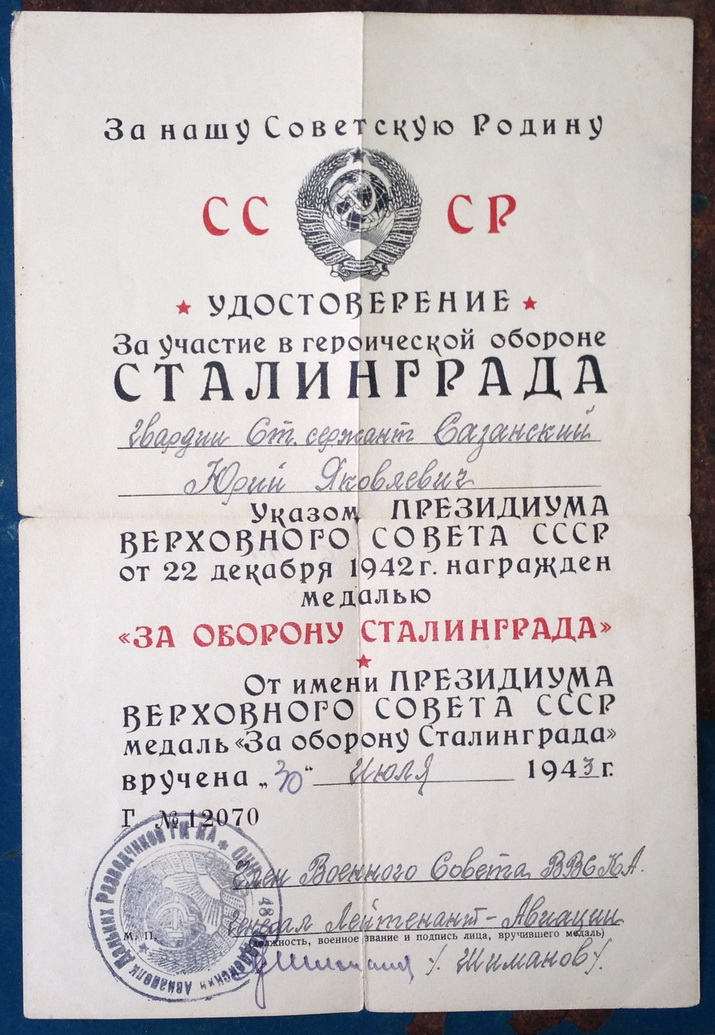 За нашу Советскую Родину
СС СР
УДОСТОВЕРЕНИЕ
За участие в героической обороне
СТАЛИНГРАДА
гвардии Ст. сержант Сазанский
Юрий Яковлевич
Указом ПРЕЗИДИУМА
ВЕРХОВНОГО СОВЕТА СССР
от 22 декабря 1942 г. награжден
медалью
«ЗА ОБОРОНУ СТАЛИНГРАДА»
От имени ПРЕЗИДИУМА
ВЕРХОВНОГО СОВЕТА СССР
медаль «За оборону Сталинграда»
вручена „30“ Июля 1943 г.
Г № 12070
Член Военного Совета ВВС К.А.
Генерал Лейтенант-Авиации
М. П. (должность, военное звание и подпись лица, вручившего медаль)
/. Шиманов/.
Авиаполк Дальних Разведчиков ГК КА
48